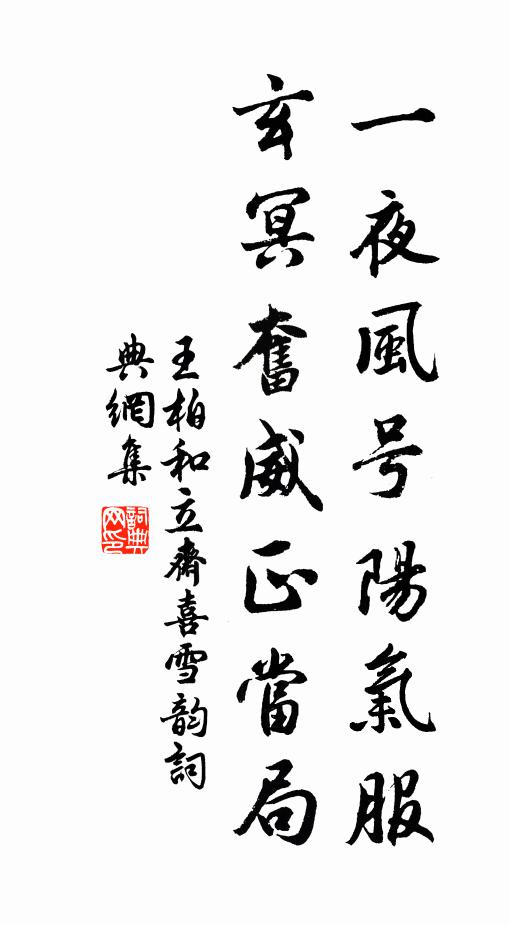 一夜風号陽氣服
玄冥奮威正當局
王柏和立齋喜雪韵詞
典網集
詞典網印